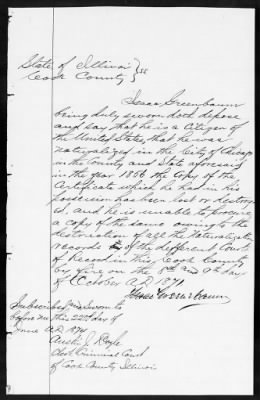 State of Illinois } ss
Cook County
Isaac Greenbaum
being duly sworn doth depose
and say that he is a Citizen of
the United States, that he was
naturalized, in the City of Chicago
in the County and State aforesaid
in the year 1856 the Copy of the
Certificate which he had in his
possession has been lost or destroy
ed, and he is unable to procure
a copy of the same owing to the
destruction of all the Naturalization
records of the different Courts
of Record in this Cook County
by fire on the 8th and 9th day
of October A.D. 1871
Isaac Greenebaum
Subscribed and Sworn to
before me this 22nd day of
June A.D. 1874
Austin J. Doyle
Clerk Criminal Court
of Cook County Illinois